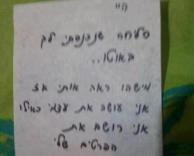 היי
סליחה שנכנסתי לך
באוטו..
מישהו ראה אותי אז
אני עושה את עצמי כאילו
אני רושם את
הפרטים שלי